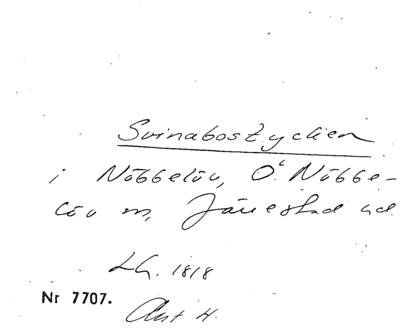 Svinabostycken
i Nöbbelöv, Ö. Nöbbe-
löv sn, Järrestad hd
LA. 1818
Nr 7707.